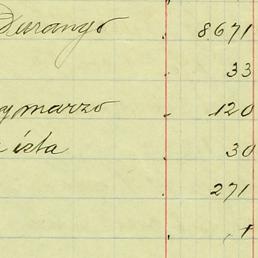 Durango 8671
33
y marzo 120
ista 30
271